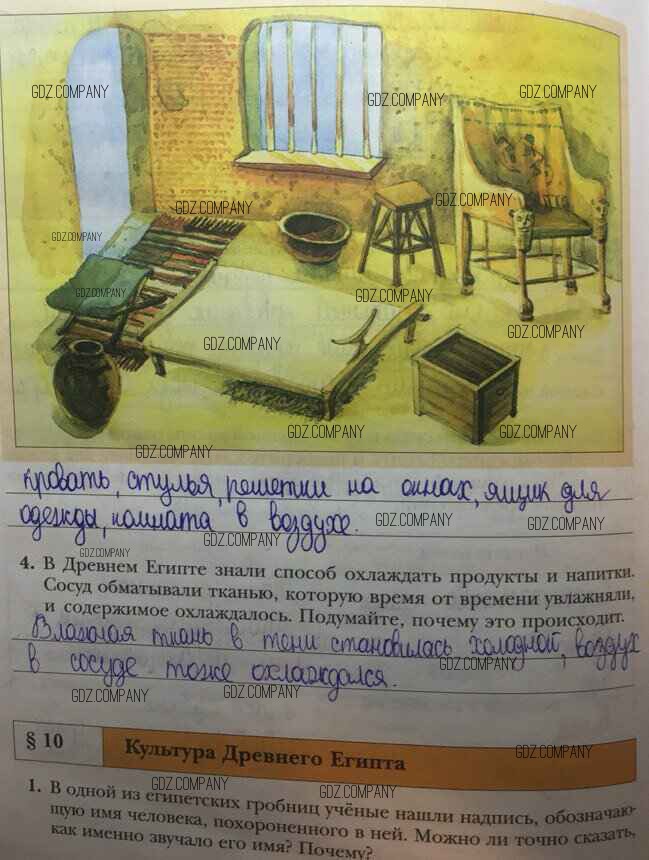 GDZ.COMPANY
GDZ.COMPANY
GDZ.COMPANY
GDZ.COMPANY
GDZ.COMPANY
GDZ.COMPANY
GDZ.COMPANY
GDZ.COMPANY
GDZ.COMPANY
GDZ.COMPANY
GDZ.COMPANY
GDZ.COMPANY
GDZ.COMPANY
кровать, стулья, решетки на окнах, ящик для
одежды, комната в воздухе.
GDZ.COMPANY
GDZ.COMPANY
GDZ.COMPANY
GDZ.COMPANY
4. В Древнем Египте знали способ охлаждать продукты и напитки.
Сосуд обматывали тканью, которую время от времени увлажняли,
и содержимое охлаждалось. Подумайте, почему это происходит.
Влажная ткань в тени становилась холодной, воздух
в сосуде тоже охлаждался.
GDZ.COMPANY
GDZ.COMPANY
GDZ.COMPANY
§ 10
Культура Древнего Египта
GDZ.COMPANY
1. В одной из египетских гробниц учёные нашли надпись, обозначаю-
щую имя человека, похороненного в ней. Можно ли точно сказать,
как именно звучало его имя? Почему?
GDZ.COMPANY
GDZ.COMPANY